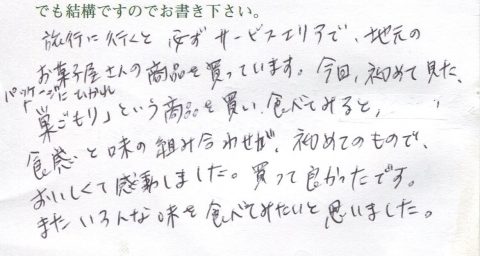 でも結構ですのでお書き下さい。
旅行に行くと必ずサービスエリアで、地元の
お菓子屋さんの商品を買っています。今回、初めて見た、
パッケージにひかれ
巣ごもり」という商品を買い、食べてみると、
食感と味の組み合わせが、初めてのもので、
おいしくて感動しました。買って良かったです。
またいろんな味を食べてみたいと思いました。